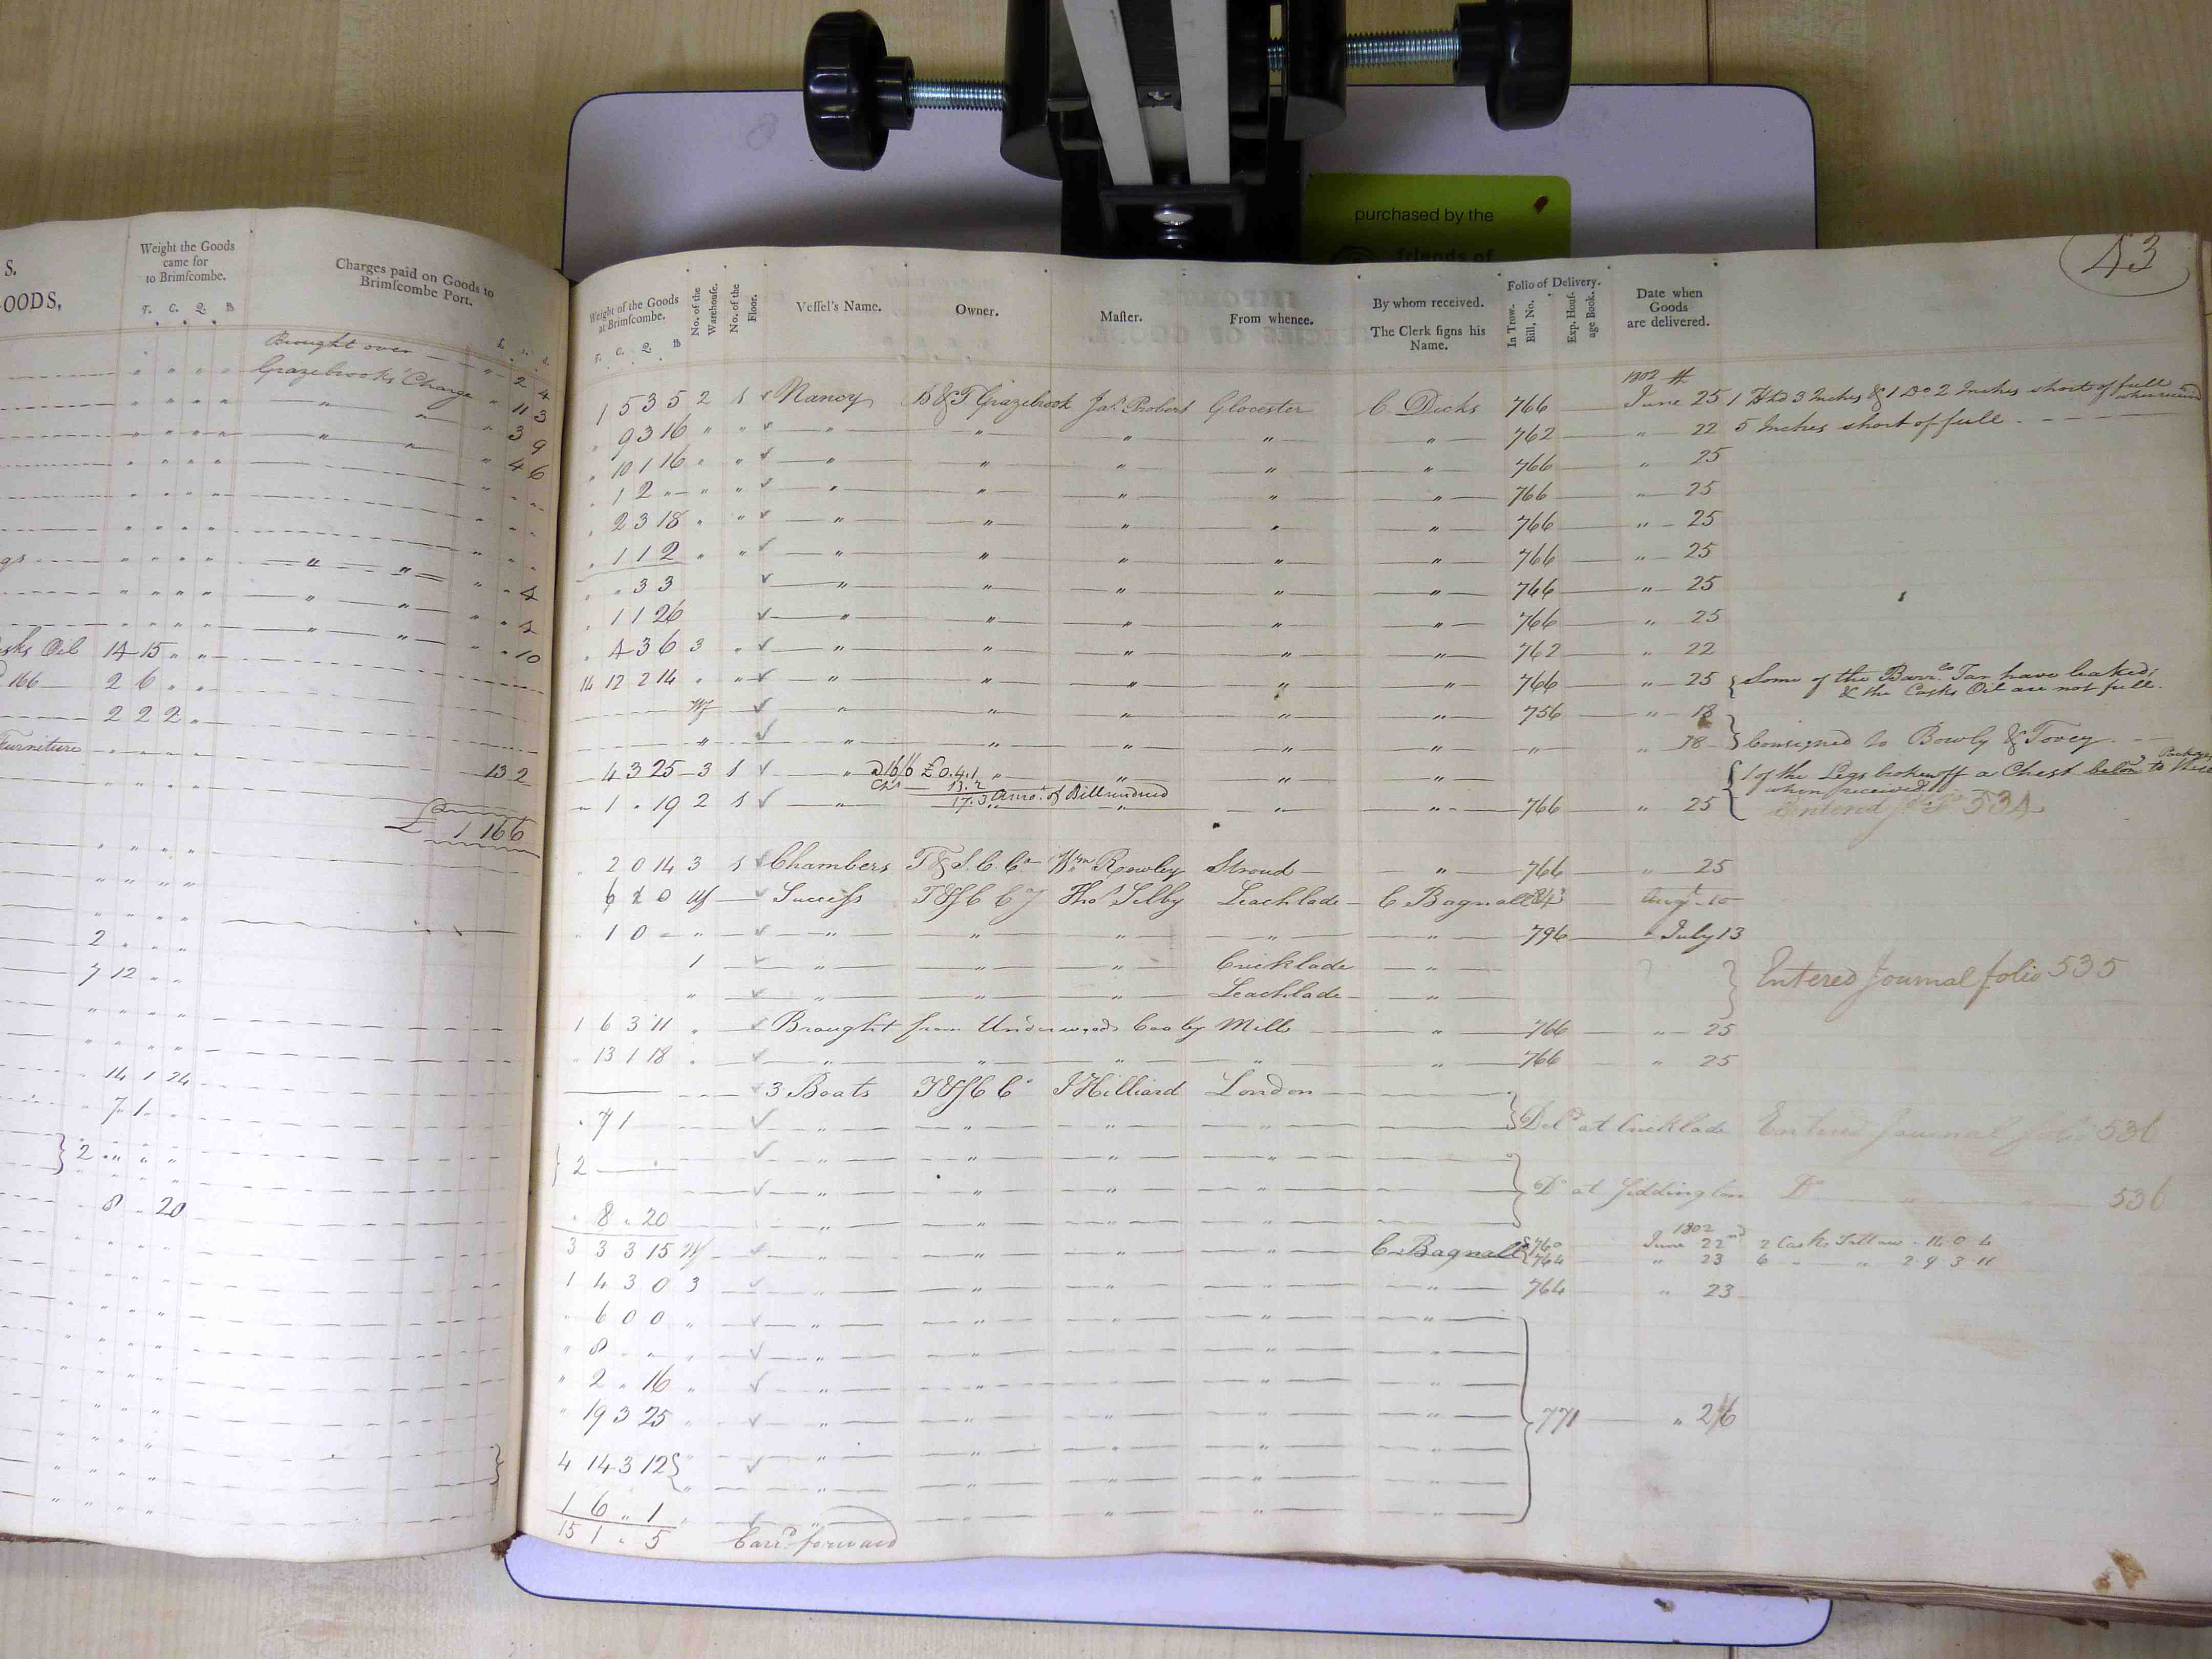 purchased by the
friends of
S.
OODS,
Weight the Goods
came for
to Brimſcombe.
T. C. Q. lb
Charges paid on Goods to
Brimſcombe Port.
Brought over — " 2 4
Grazebrooks Charge " 11 3
" " " 3 9
" " " 4 6
gs " " " " 4
" " "
" " " " 10
sks Oil 14 15 " "
166 2 6 " "
2 2 2 "
Furniture
13 2
£ 1 16 6
2 " " "
7 12 " "
14 1 24
" 7 1 "
} 2 " " "
8 " 20
43
Weight of the Goods
at Brimſcombe.
T. C. Q. lb
No. of the
Warehouſe.
No. of the
Floor.
Veſſel's Name.
Owner.
Maſter.
From whence.
By whom received.
The Clerk ſigns his
Name.
Folio of Delivery.
In Trow-
Bill, No.
Exp. Houſ-
age Book.
Date when
Goods
are delivered.
1802
1 5 3 5 2 1 ✓ Nancy B & T Grazebrook Jas. Probert Glocester C. Dicks 766 June 25 1 Hhd 3 Inches & 1 Do 2 Inches short of full when received
" 9 3 16 " " ✓ " " " " " 762 " 22 5 Inches short of full
" 10 1 16 " " ✓ " " " " " 766 " 25
" 1 2 " " " ✓ " " " " " 766 " 25
" 2 3 18 " " ✓ " " " " " 766 " 25
" 1 1 2 " " ✓ " " " " " 766 " 25
" " 3 3 ✓ " " " " " 766 " 25
" 1 1 26 ✓ " " " " " 766 " 25
" 4 3 6 3 " ✓ " " " " " 762 " 22
14 12 2 14 " " ✓ " " " " " 766 " 25 { Some of the Barr.s Tar have leaked;
& the Casks Oil are not full.
✓ " " " " " 756 " 18
" ✓ " " " " " " " 18 } Consigned to Bowly & Tovey
4 3 25 3 1 ✓ " " " " "
16/6 £0.4.1
Chs 13.2
17.3 Amot. of Bill rendred
{ 1 of the Legs broken off a Chest belong to these Packages
when received
" 1 " 19 2 1 ✓ " " " 766 " 25
Entered Jo. Fo 534
" 2 0 14 3 1 ✓ Chambers T & S. C. Co Wm Rowley Stroud " 766 " 25
6 2 0 ✓ Success T & S C Co Tho Selby Leachlade C Bagnall Augt 10
" 1 0 " " ✓ " " " " " 796 " July 13
1 ✓ " " " Cricklade "
" ✓ " " " Leachlade "
} Entered Journal folio 535
1 6 3 11 " ✓ Brought from Underwoods Coaley Mill " 766 " 25
" 13 1 18 " ✓ " " " " " 766 " 25
✓ 3 Boats T & S C Co J Hilliard London
" 7 1 ✓ " " " " } Deld at Cricklade Entered Journal folio 536
{ 2 ✓ " " " "
✓ " " " " } Do at Siddington Do " 536
" 8 " 20 " " " "
3 3 3 15 ✓ " " " " C. Bagnall { 760 1802 June 22nd 2 Casks Tallow " 14 0 4
764 " 23 6 " " 2 9 3 11
1 4 3 0 3 ✓ " " " " " 764 " 23
" 6 0 0 " ✓ " " " " "
" 8 " " " ✓ " " " " "
" 2 " 16 " ✓ " " " " "
" 19 3 25 " ✓ " " " " " } 771 " 26
4 14 3 12 } ✓ " " " " "
" " " " "
1 6 " 1 ✓ " " " " "
15 1 " 5 Card. forward